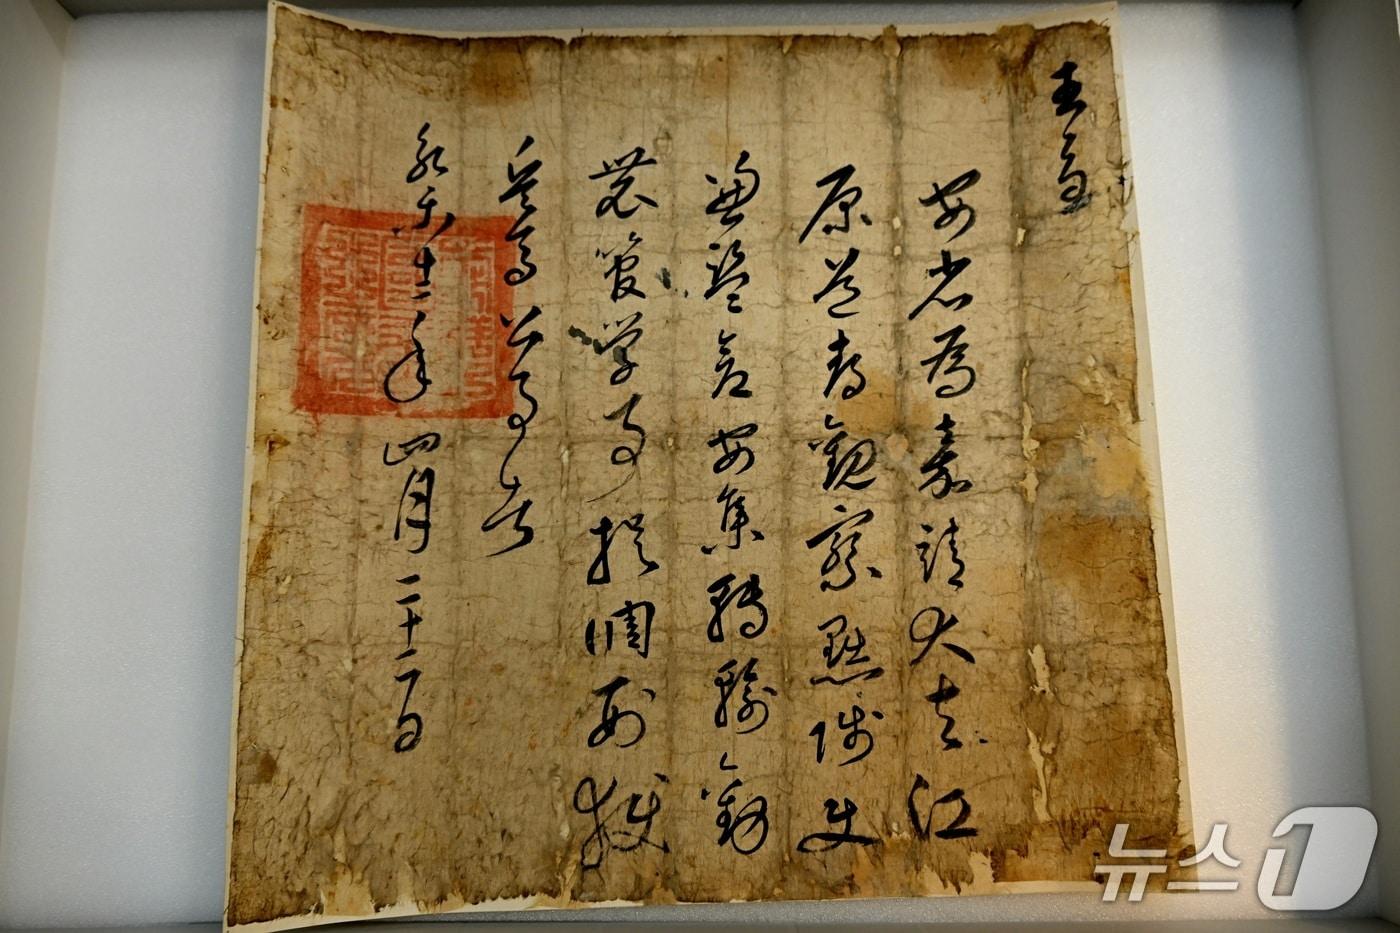 王旨
安省爲嘉靖大夫江
原道都觀察黜陟使
兼監倉安集轉輸勸
農管學事提調刑獄
兵馬公事者
永樂十年四月二十二日
뉴스1